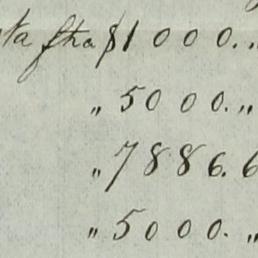 ta fha $1000.„
„ 5000.„
„ 7886.6
„ 5000.„